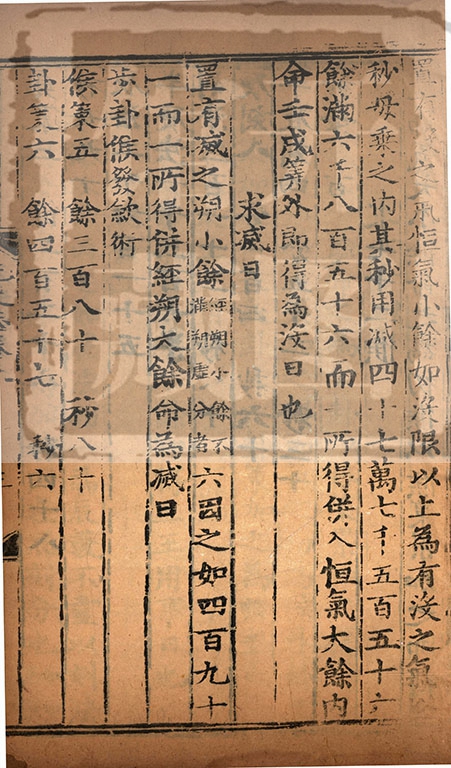 置有沒之氣恒氣小餘如沒限以上為有沒之氣
秒母乘之內其秒用减四十七萬七千五百五十六
餘滿六千八百五十六而一所得併入恒氣大餘內
命壬戌筭外即得為沒日也
求㓕日
置有㓕之朔小餘經朔小餘不滿朔虛分者六因之如四百九十
一而一所得併經朔大餘命為㓕日
步卦候發歛術
候策五 餘三百八十 秒八十
卦策六 餘四百五十七 秒六十八